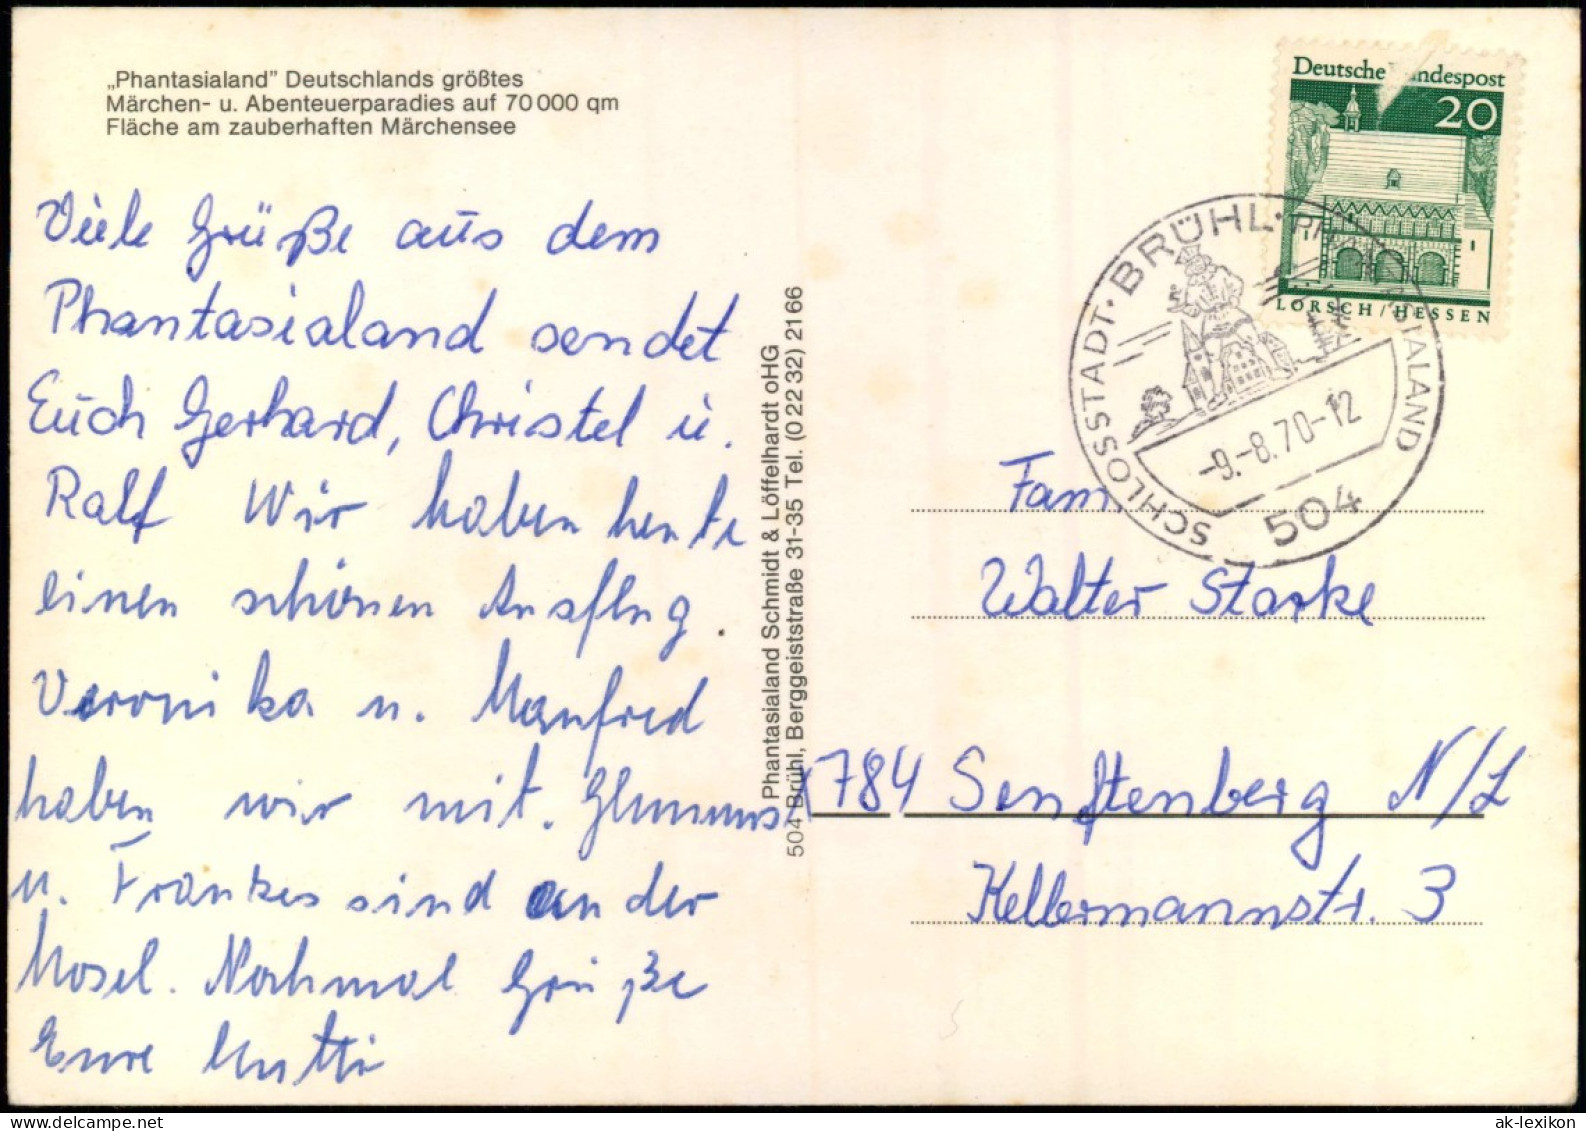 „Phantasialand” Deutschlands größtes
Märchen- u. Abenteuerparadies auf 70 000 qm
Fläche am zauberhaften Märchensee
Viele Grüße aus dem
Phantasialand sendet
Euch Gerhard, Christel u.
Ralf Wir haben heute
einen schönen Ausflug.
Veronika u. Manfred
haben wir mit.
u. Frankes sind an der
Mosel. Nochmal Grüße
Eure Mutti
Phantasialand Schmidt & Löffelhardt oHG
504 Brühl, Berggeiststraße 31-35 Tel. (0 22 32) 2166
Deutsche Bundespost
20
LORSCH/HESSEN
SCHLOSSTADT · BRÜHL · PHANTASIALAND
-9.-8.70-12
504
Fam.
Walter Starke
x784 Senftenberg N/L
Kellermannstr. 3
ak-lexikon